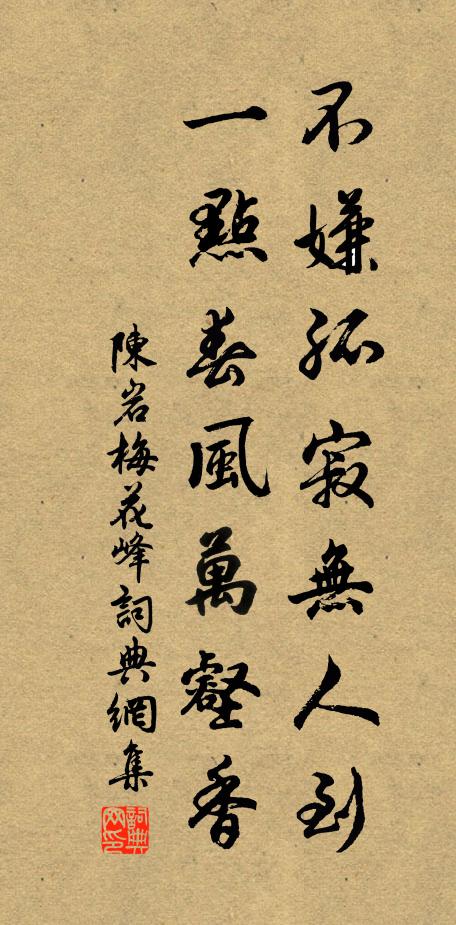 不嫌孤寂無人到
一點春風萬壑香
陳岩梅花峰詞典網集
詞典网印